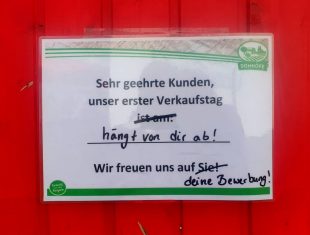 Sehr geehrte Kunden,
unser erster Verkaufstag
ist am:
hängt von dir ab!
Wir freuen uns auf Sie!
deine Bewerbung!